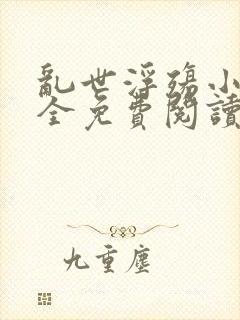 亂世浮殤小
全免費閱讀
九重塵